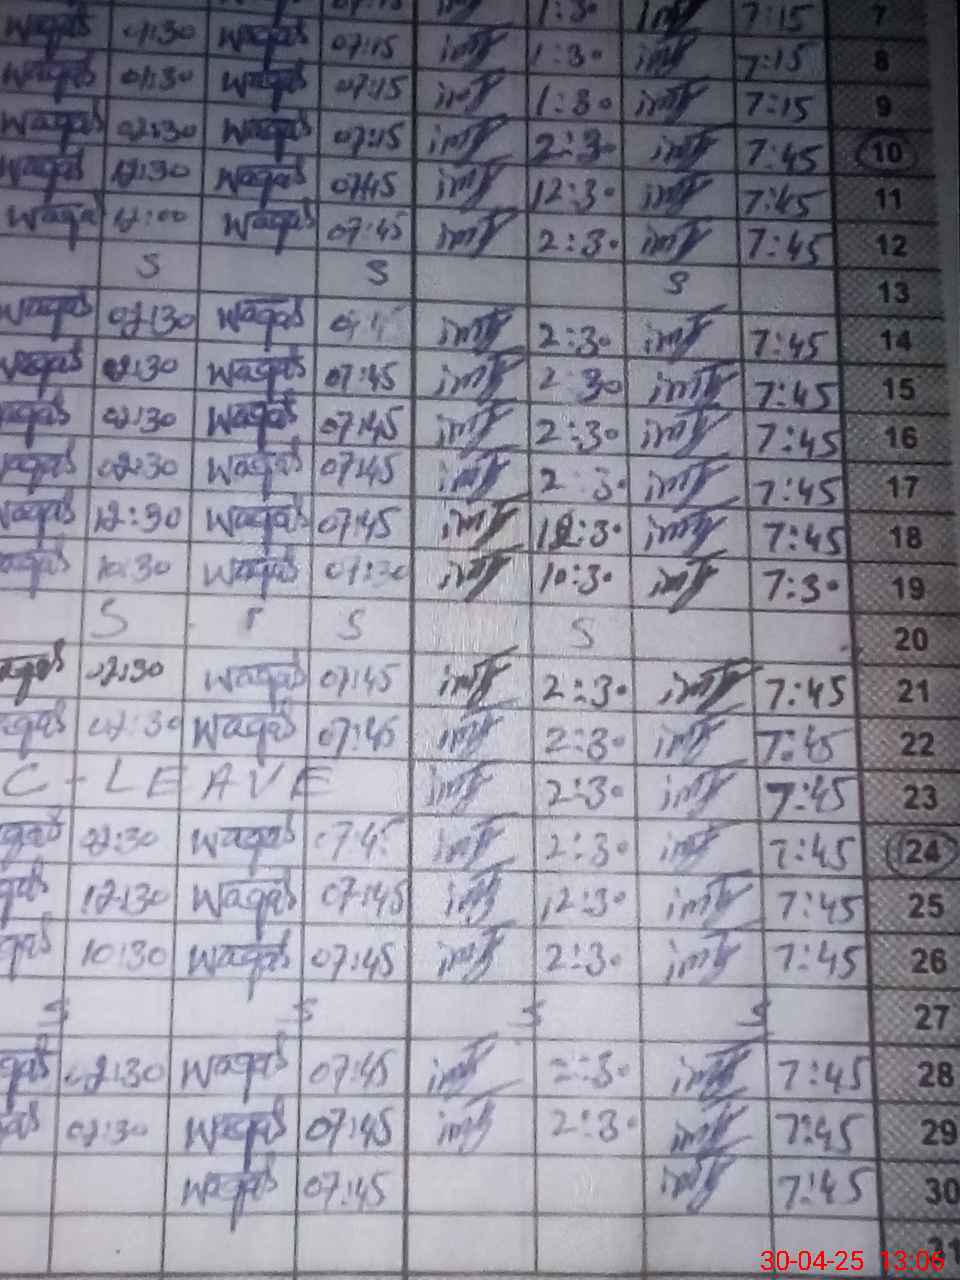 7:15 7
Waqas 01:30 Waqas 07:15 imt 1:30 imt 7:15 8
Waqas 01:30 Waqas 07:15 imt 1:30 imt 7:15 9
Waqas 02:30 Waqas 07:15 imt 2:30 imt 7:45 10
Waqas 12:30 Waqas 0745 imt 12:30 imt 7:45 11
Waqa 12:00 Waqas 07:45 imt 2:30 imt 7:45 12
S S S 13
Waqas 02:30 Waqas imt 2:30 imt 7:45 14
Waqas 02:30 Waqas 07:45 imt 2:30 imt 7:45 15
aqas 02:30 Waqas 07:45 imt 2:30 imt 7:45 16
aqas 02:30 Waqas 07:45 imt 2:30 imt 7:45 17
Waqas 12:30 Waqas 07:45 imt 12:30 imt 7:45 18
aqas 10:30 Waqas 07:30 imt 10:30 imt 7:30 19
S S S 20
aqas 02:30 Waqas 07:45 imt 2:30 imt 7:45 21
aqas 02:30 Waqas 07:45 imt 2:30 imt 7:45 22
C - LEAVE imt 2:30 imt 7:45 23
qas 02:30 Waqas 07:45 imt 2:30 imt 7:45 24
qas 12:30 Waqas 07:45 imt 12:30 imt 7:45 25
qas 10:30 Waqas 07:45 imt 2:30 imt 7:45 26
S S S S 27
qas 02:30 Waqas 07:45 imt 2:30 imt 7:45 28
as 02:30 Waqas 07:45 imt 2:30 imt 7:45 29
Waqas 07:45 imt 7:45 30
31
30-04-25 13:06